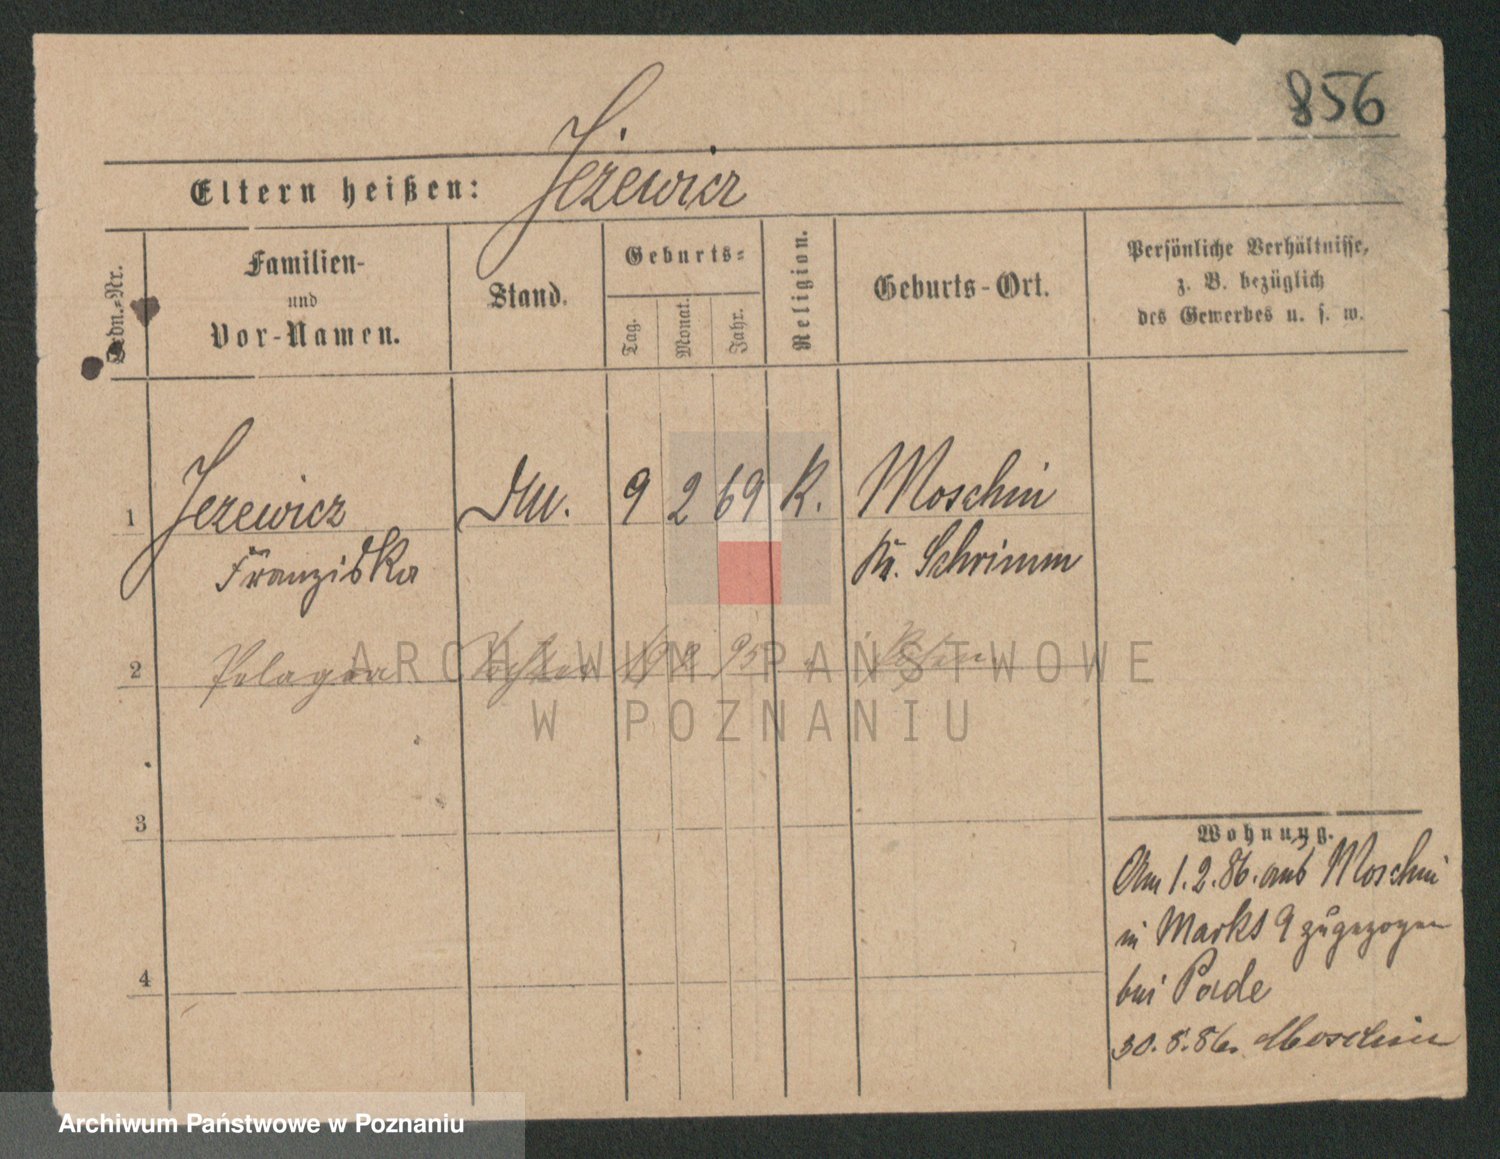 856
Eltern heißen: Jezewicz
Lfdn.-Nr.
Familien-
und
Vor-Namen.
Stand.
Geburts-
Tag.
Monat.
Jahr.
Religion.
Geburts-Ort.
Persönliche Verhältnisse,
z. B. bezüglich
des Gewerbes u. s. w.
1 Jezewicz 9 2 69 K. Moschin
Franziska Kr. Schrimm
2 Pelagia Tochter 95 Posen
3
4
Wohnung.
Am 1.2.86. aus Moschin
in Markt 9 zugezogen
bei Pade
30.8.86. Moschin
ARCHIWUM PAŃSTWOWE
W POZNANIU
Archiwum Państwowe w Poznaniu